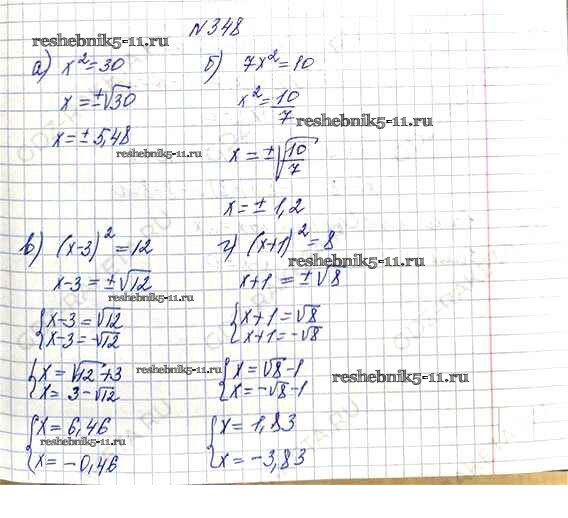 №348
reshebnik5-11.ru
а) x² = 30
x = ±√30
x = ± 5,48
reshebnik5-11.ru
б) 7x² = 10
x² = 10/7
reshebnik5-11.ru
x = ±√(10/7)
x = ± 1,2
в) (x-3)² = 12
x-3 = ±√12
reshebnik5-11.ru
{ x-3 = √12
x-3 = -√12
{ x = √12 + 3
x = 3 - √12
reshebnik5-11.ru
{ x = 6,46
reshebnik5-11.ru
x = -0,46
г) (x+1)² = 8
reshebnik5-11.ru
x+1 = ±√8
{ x+1 = √8
x+1 = -√8
{ x = √8 - 1
x = -√8 - 1
reshebnik5-11.ru
{ x = 1,83
x = -3,83